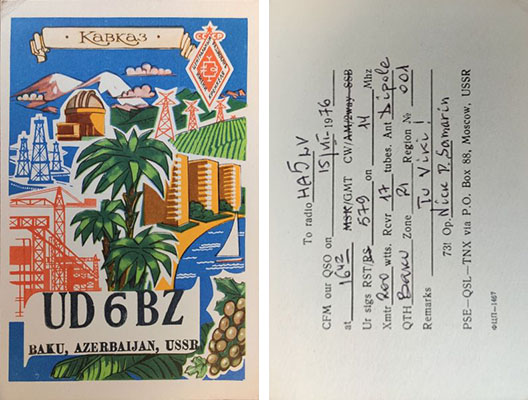 Кавказ
UD6BZ
BAKU, AZERBAIJAN, USSR
To radio HA5LV
CFM our QSO on 15/VI-1976
at 1642 MSK/GMT CW/AM/2way SSB
Ur sigs RST/RS 579 on 14 Mhz
Xmtr 200 wtts. Revr 17 tubes. Ant Dipole
QTH Baku Zone 21 Region № 001
Remarks Tu Viki!
73! Op. Nick P. Samarin
PSE-QSL-TNX via P.O. Box 88, Moscow, USSR